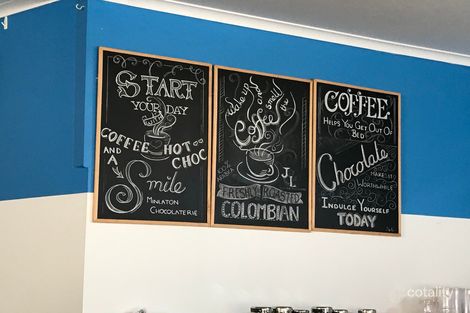 START
YOUR DAY
COFFEE HOT
CHOC
AND
A Smile
MINLATON
CHOCOLATERIE
wake up
and
smell the
Coffee
100%
ARABICA
FRESHLY ROASTED
COLOMBIAN
COFFEE
HELPS YOU GET OUT OF
BED
Chocolate
MAKES IT
WORTHWHILE
INDULGE YOURSELF
TODAY
cotality